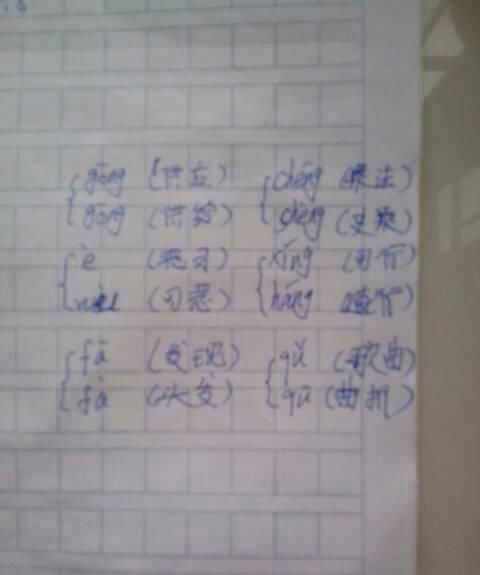 gōng (供应) chéng (乘法)
gòng (供给) shèng (史乘)
è (恶习) xíng (可行)
wù (可恶) háng (银行)
fā (发现) qǔ (歌曲)
fà (头发) qū (曲折)